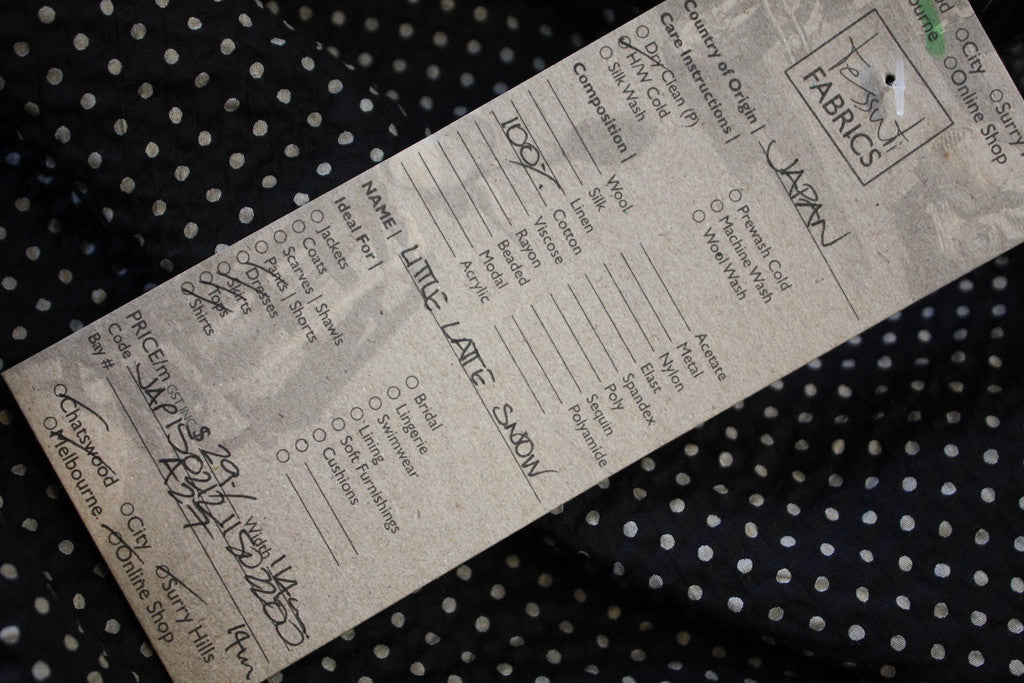 Tessuti
FABRICS
City
Online Shop
Surry
Country of Origin | JAPAN
Care Instructions |
Dry Clean (P)
H/W Cold
Silk Wash
Prewash Cold
Machine Wash
Wool Wash
Composition |
Wool
Silk
Linen
100% Cotton
Viscose
Rayon
Beaded
Modal
Acrylic
Acetate
Metal
Nylon
Elast
Spandex
Poly
Sequin
Polyamide
NAME | LITTLE LATTE SNOW
Ideal For |
Jackets
Coats
Scarves | Shawls
Pants | Shorts
Dresses
Skirts
Tops
Shirts
Bridal
Lingerie
Swimwear
Lining
Soft Furnishings
Cushions
PRICE/m GST INC $ 29/ Width 114cm
Code
Bay # A27
14m
Chatswood
Melbourne
City
Online Shop
Surry Hills